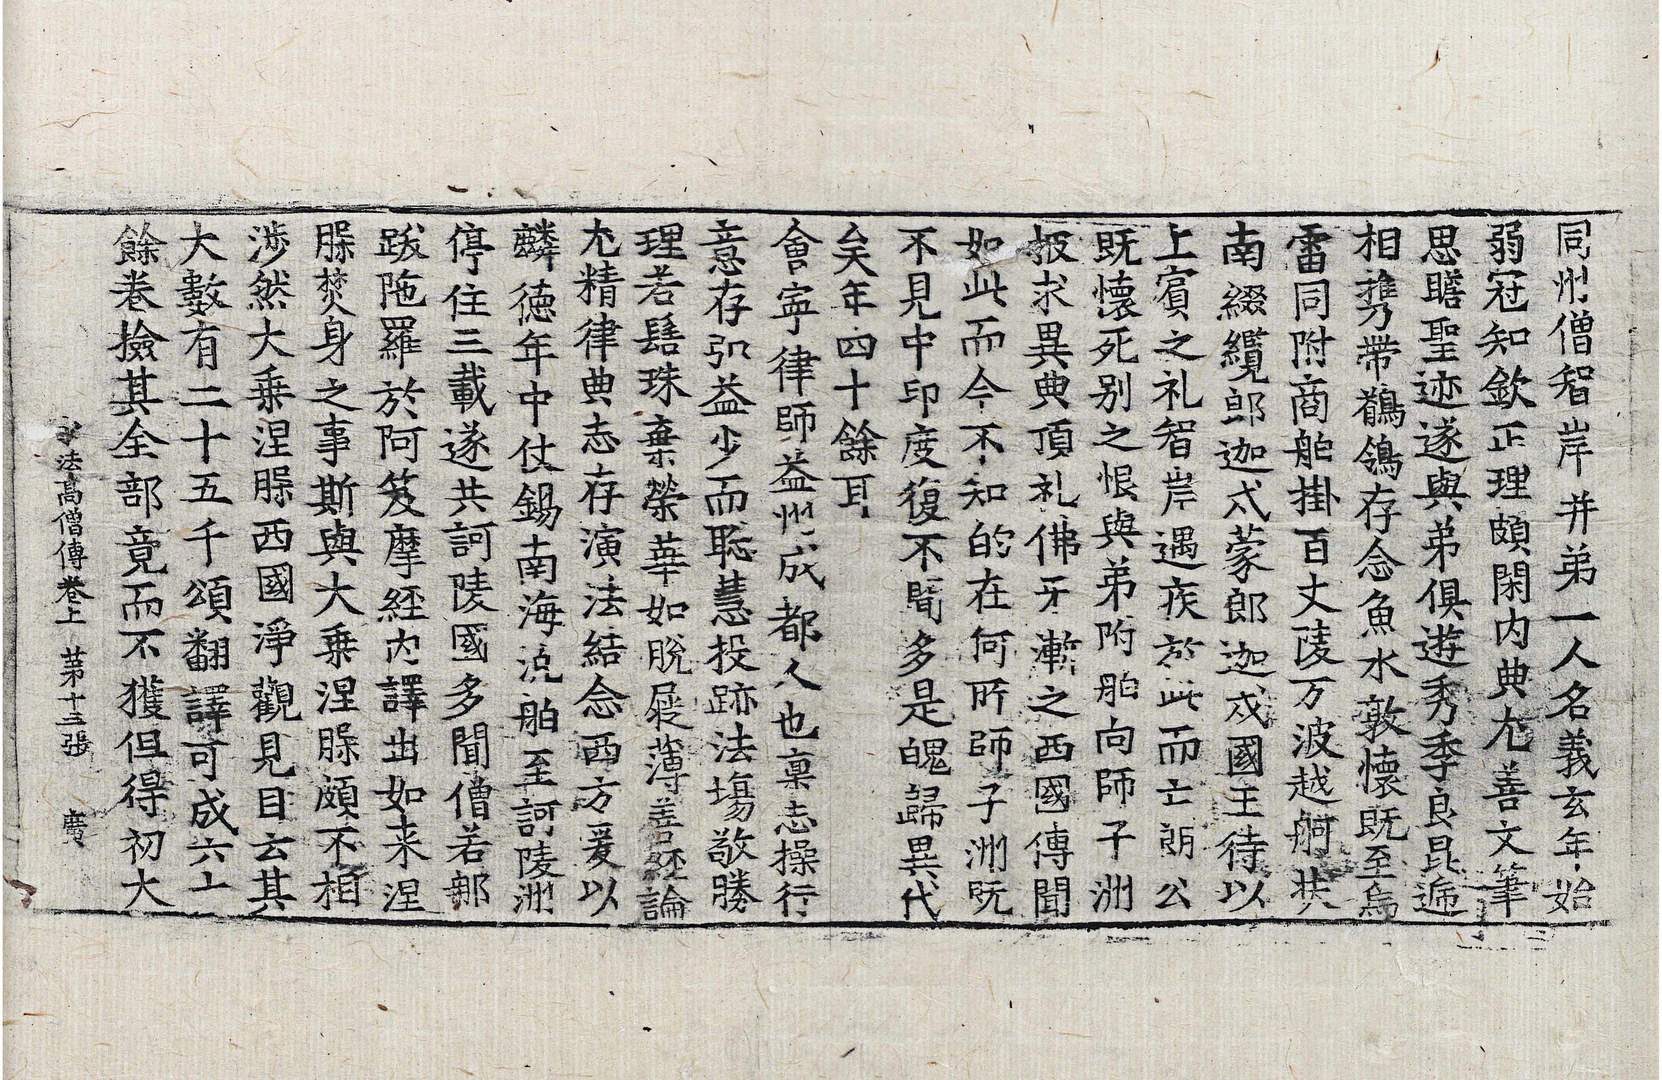 同州僧智岸并弟一人名義玄年始
弱冠知欽正理頗閑內典尤善文筆
思瞻聖迹遂與弟俱遊秀季良昆遞
相携帶鶺鴒存念魚水敦懷既至烏
雷同附商舶掛百丈陵万波越舸共
南綴纜郎迦戍蒙郎迦戍國王待以
上賓之礼智岸遇疾於此而亡朗公
既懷死別之恨與弟附舶向師子洲
披求異典頂礼佛牙漸之西國傳聞
如此而今不知的在何所師子洲既
不見中印度復不聞多是魄歸異代
矣年四十餘耳
會寧律師益州成都人也稟志操行
意存弘益少而聡慧投跡法場敬勝
理若髻珠棄榮華如脫屣薄善經論
尤精律典志存演法結念西方爰以
麟德年中仗錫南海汎舶至訶陵洲
停住三載遂共訶陵國多聞僧若那
跋陁羅於阿笈摩經內譯出如来涅
𣎴焚身之事斯與大乗涅𣎴頗不相
渉然大乗涅𣎴西國淨觀見目云其
大數有二十五千頌翻譯可成六十
餘卷撿其全部竟而不獲但得初大
法高僧傳卷上 苐十三張 廣